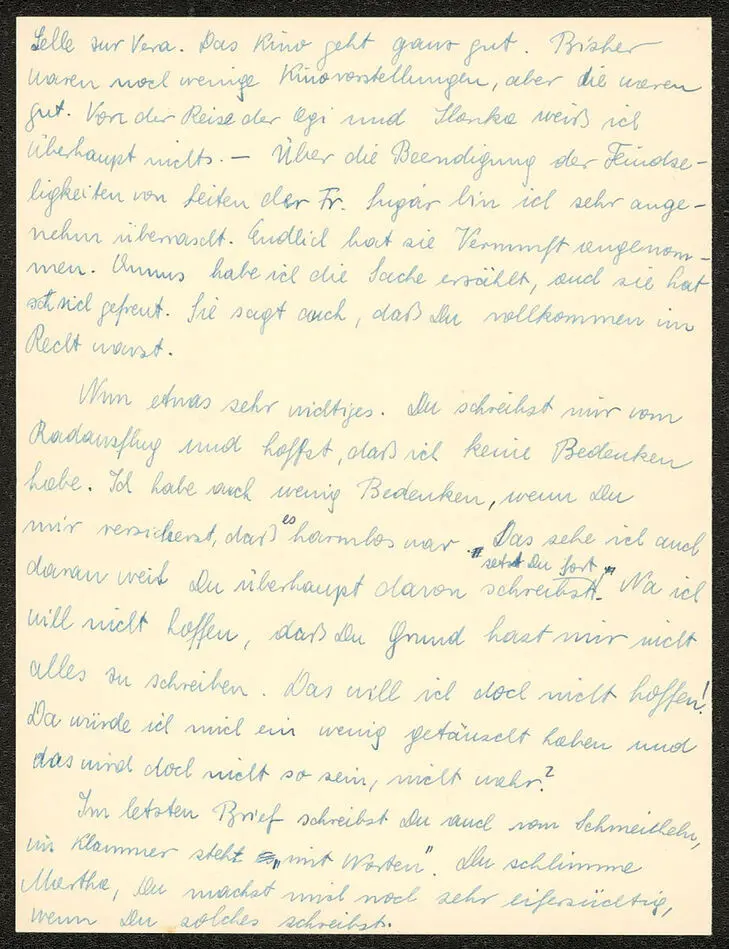 Selle zur Vera. Das Kino geht ganz gut. Bisher
waren noch wenige Kinovorstellungen, aber die waren
gut. Von der Reise der Ogi und Ilonka weiß ich
überhaupt nichts. — Über die Beendigung der Feindse-
ligkeiten von Seiten der Fr. Sugár bin ich sehr ange-
nehm überrascht. Endlich hat sie Vernunft angenom-
men. habe ich die Sache erzählt, und sie hat
sich gefreut. Sie sagt auch, daß Du vollkommen im
Recht warst.
Nun etwas sehr wichtiges. Du schreibst mir vom
Radausflug und hoffst, daß ich keine Bedenken
habe. Ich habe auch wenig Bedenken, wenn Du
mir versicherst, daß es harmlos war. „Das sehe ich auch
setzt Du fort"
daran weil Du überhaupt davon schreibst. Na ich
will nicht hoffen, daß Du Grund hast mir nicht
alles zu schreiben. Das will ich doch nicht hoffen!
Da würde ich mich ein wenig getäuscht haben und
das wird doch nicht so sein, nicht wahr?
Im letzten Brief schreibst Du auch vom Schmeicheln,
in Klammer steht „mit Worten". Du schlimme
Martha, Du machst mich noch sehr eifersüchtig,
wenn Du solches schreibst.